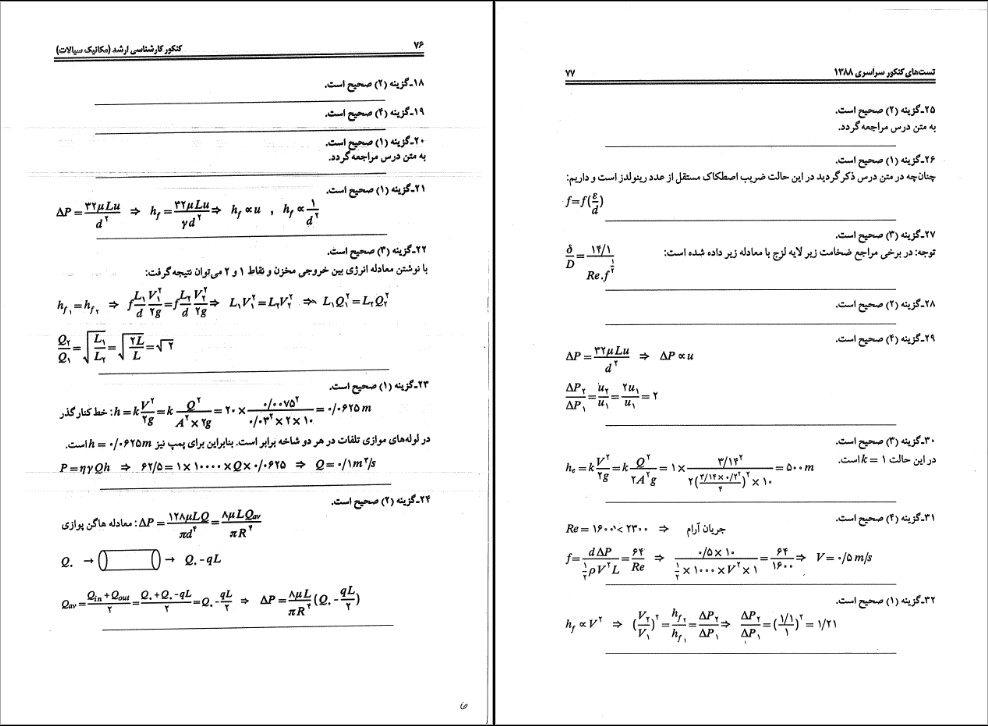 ۷۶
کنکور کارشناسی ارشد (مکانیک سیالات)
۱۸ـ گزینه (۲) صحیح است.
۱۹ـ گزینه (۴) صحیح است.
۲۰ـ گزینه (۱) صحیح است.
به متن درس مراجعه گردد.
۲۱ـ گزینه (۱) صحیح است.
ΔP = ۳۲μLu / d^۲ ⇒ h_f = ۳۲μLu / γd^۲ ⇒ h_f ∝ u , h_f ∝ ۱ / d^۲
۲۲ـ گزینه (۳) صحیح است.
با نوشتن معادله انرژی بین خروجی مخزن و نقاط ۱ و ۲ می‌توان نتیجه گرفت:
h_f۱ = h_f۲ ⇒ f L_۱/d V_۱^۲/۲g = f L_۲/d V_۲^۲/۲g ⇒ L_۱V_۱^۲ = L_۲V_۲^۲ ⇒ L_۱Q_۱^۲ = L_۲Q_۲^۲
Q_۲/Q_۱ = √(L_۱/L_۲) = √(۲L/L) = √۲
۲۳ـ گزینه (۱) صحیح است.
خط کنار گذر : h = k V^۲/۲g = k Q^۲/(A^۲ × ۲g) = ۲۰ × ۰/۰۰۷۵^۲/(۰/۰۳^۲ × ۲ × ۱۰) = ۰/۰۶۲۵ m
در لوله‌های موازی تلفات در هر دو شاخه برابر است. بنابراین برای پمپ نیز h = ۰/۰۶۲۵m است.
P = ηγQh ⇒ ۶۲/۵ = ۱ × ۱۰۰۰۰ × Q × ۰/۰۶۲۵ ⇒ Q = ۰/۱m^۳/s
۲۴ـ گزینه (۲) صحیح است.
معادله هاگن پوازی : ΔP = ۱۲۸μLQ/πd^۴ = ۸μLQ_av/πR^۴
Q_۰ → → Q_۰ - qL
Q_av = (Q_in + Q_out)/۲ = (Q_۰ + Q_۰ - qL)/۲ = Q_۰ - qL/۲ ⇒ ΔP = ۸μL/πR^۴ (Q_۰ - qL/۲)
تست‌های کنکور سراسری ۱۳۸۸
۷۷
۲۵ـ گزینه (۲) صحیح است.
به متن درس مراجعه گردد.
۲۶ـ گزینه (۱) صحیح است.
چنانچه در متن درس ذکر گردید در این حالت ضریب اصطکاک مستقل از عدد رینولدز است و داریم:
f = f(ε/d)
۲۷ـ گزینه (۳) صحیح است.
توجه: در برخی مراجع ضخامت زیر لایه لزج با معادله زیر داده شده است: δ/D = ۱۴/۱ / Re.f^(۱/۲)
۲۸ـ گزینه (۲) صحیح است.
۲۹ـ گزینه (۴) صحیح است.
ΔP = ۳۲μLu / d^۲ ⇒ ΔP ∝ u
ΔP_۲/ΔP_۱ = u_۲/u_۱ = ۲u_۱/u_۱ = ۲
۳۰ـ گزینه (۳) صحیح است.
در این حالت k = ۱ است. h_e = k V^۲/۲g = k Q^۲/۲A^۲g = ۱ × ۳/۱۴^۲ / (۲(۳/۱۴×۰/۲^۲ / ۴)^۲ × ۱۰) = ۵۰۰ m
۳۱ـ گزینه (۴) صحیح است.
Re = ۱۶۰۰ < ۲۳۰۰ ⇒ جریان آرام
f = dΔP / (۱/۲ ρV^۲L) = ۶۴/Re ⇒ ۰/۵ × ۱۰ / (۱/۲ × ۱۰۰۰ × V^۲ × ۱) = ۶۴/۱۶۰۰ ⇒ V = ۰/۵ m/s
۳۲ـ گزینه (۱) صحیح است.
h_f ∝ V^۲ ⇒ (V_۲/V_۱)^۲ = h_f۲/h_f۱ = ΔP_۲/ΔP_۱ ⇒ ΔP_۲/ΔP_۱ = (۱/۱ / ۱)^۲ = ۱/۲۱